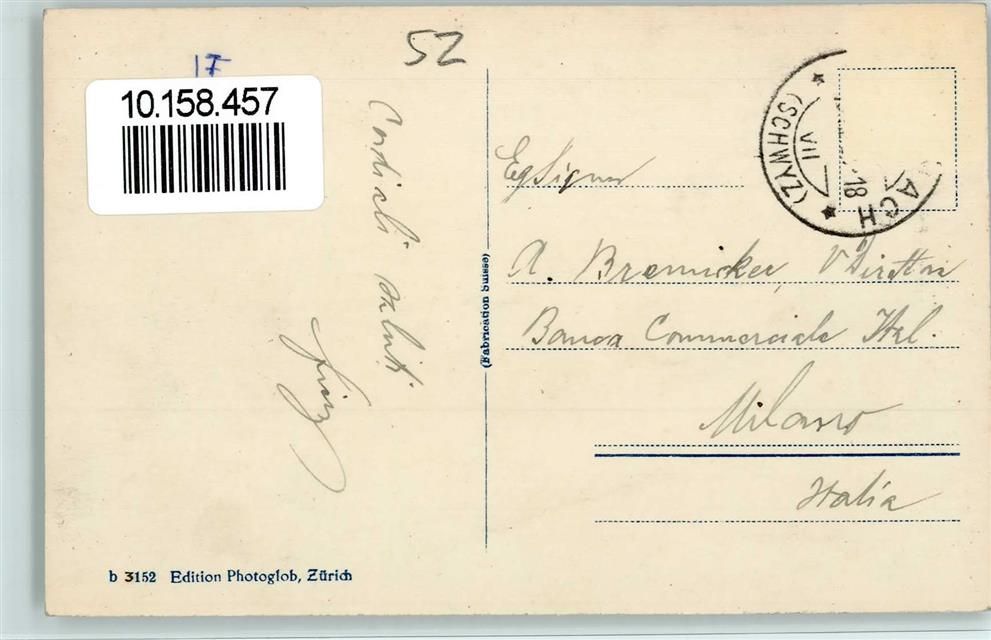 52
10.158.457
Cordiali saluti
(SCHWYZ)
VII
18
ACH
Eg Signor
A. Bremicker, V Direttore
Banca Commerciale Ital.
Milano
Italia
(Fabrication Suisse)
b 3152 Edition Photoglob, Zürich